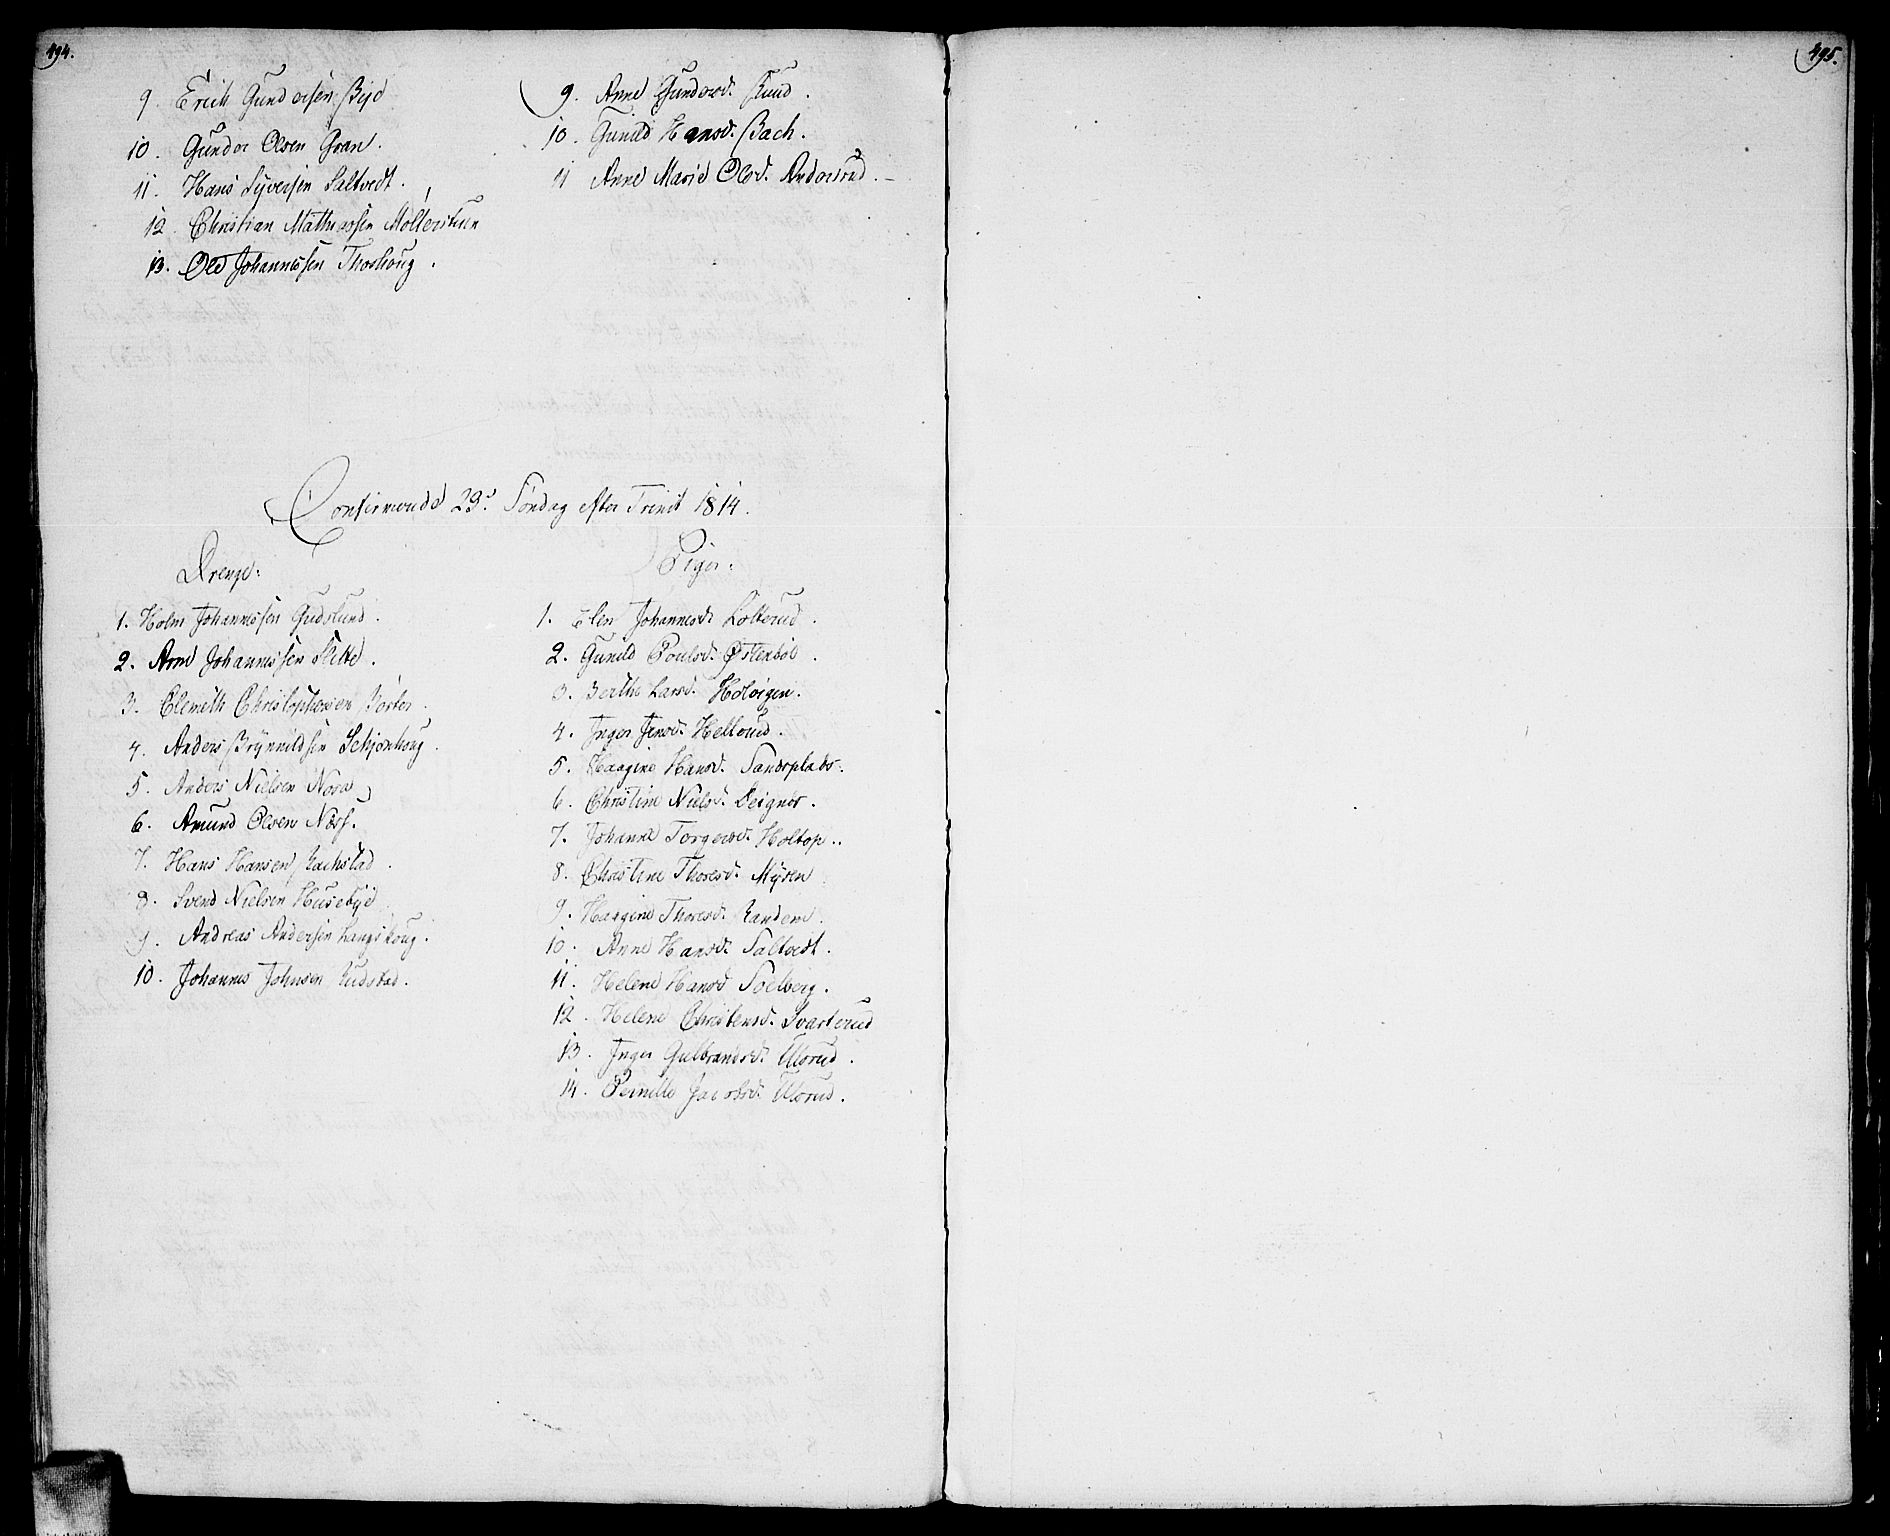 494.
9. Erich Gundersen Bye
10. Gunder Olsen Gran.
11. Hans Syversen Saltvedt.
12. Christian Mathiessen
13. Ole Johannessen Thoshoug.
9. Anne Gundersd. Ruud.
10. Gunild Hansd. Bach.
11 Anne Marie Olsd. Andersrud.
Confirmerede 23de Søndag efter Trinit 1814.
Drenge:
1. Holm Johannessen Gudslund.
2. Arne Johannessen Slette.
3. Clemeth Christophersen
4. Anders Brynnildsen Schjønhoug.
5. Anders Nielsen Nora
6. Amund Olsen Næss.
7. Hans Hansen Rachstad.
8. Svend Nielsen Husebye
9. Andreas Andersen Haugshoug.
10. Johannes Johnsen Rudstad.
Piger:
1. Elen Johannesd. Lotterud.
2. Gunild Poulsd. Østenbøl.
3. Berthe Larsd. Holvigen.
4. Inger Jensd. Hellerud.
5. Haagine Hansd. Sandsplads.
6. Christine Nielsd. Deignes.
7. Johanne Torgersd. Holtop..
8. Christine Thoresd. Myren
9. Haagine Thoresd. Randem.
10. Anne Hansd. Saltvedt.
11. Helene Hansd Soelberg.
12. Helene Christensd. Svarterud
13. Inger Gulbrandsd. Ulsrud.
14. Pernille Jacobsd. Ulsrud.
495.